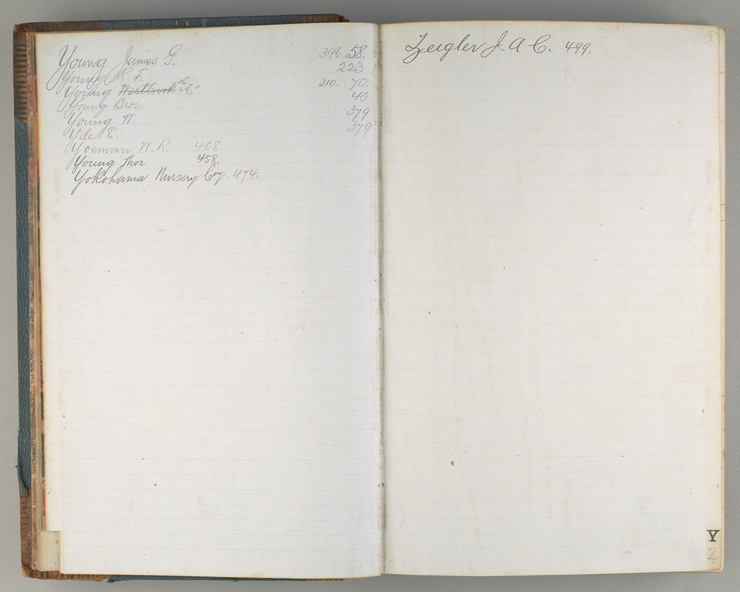 Young James G. 396. 58.
Young R. F. 223
Young Westbrook & Co 310. 70
Young Bros. 40
Young W. 379
Yde E. 379
Yoeman W. R. 408
Young Thos. 458.
Yokohama Nursery Coy. 474.
Zeigler J. A C. 499.
Y
Z